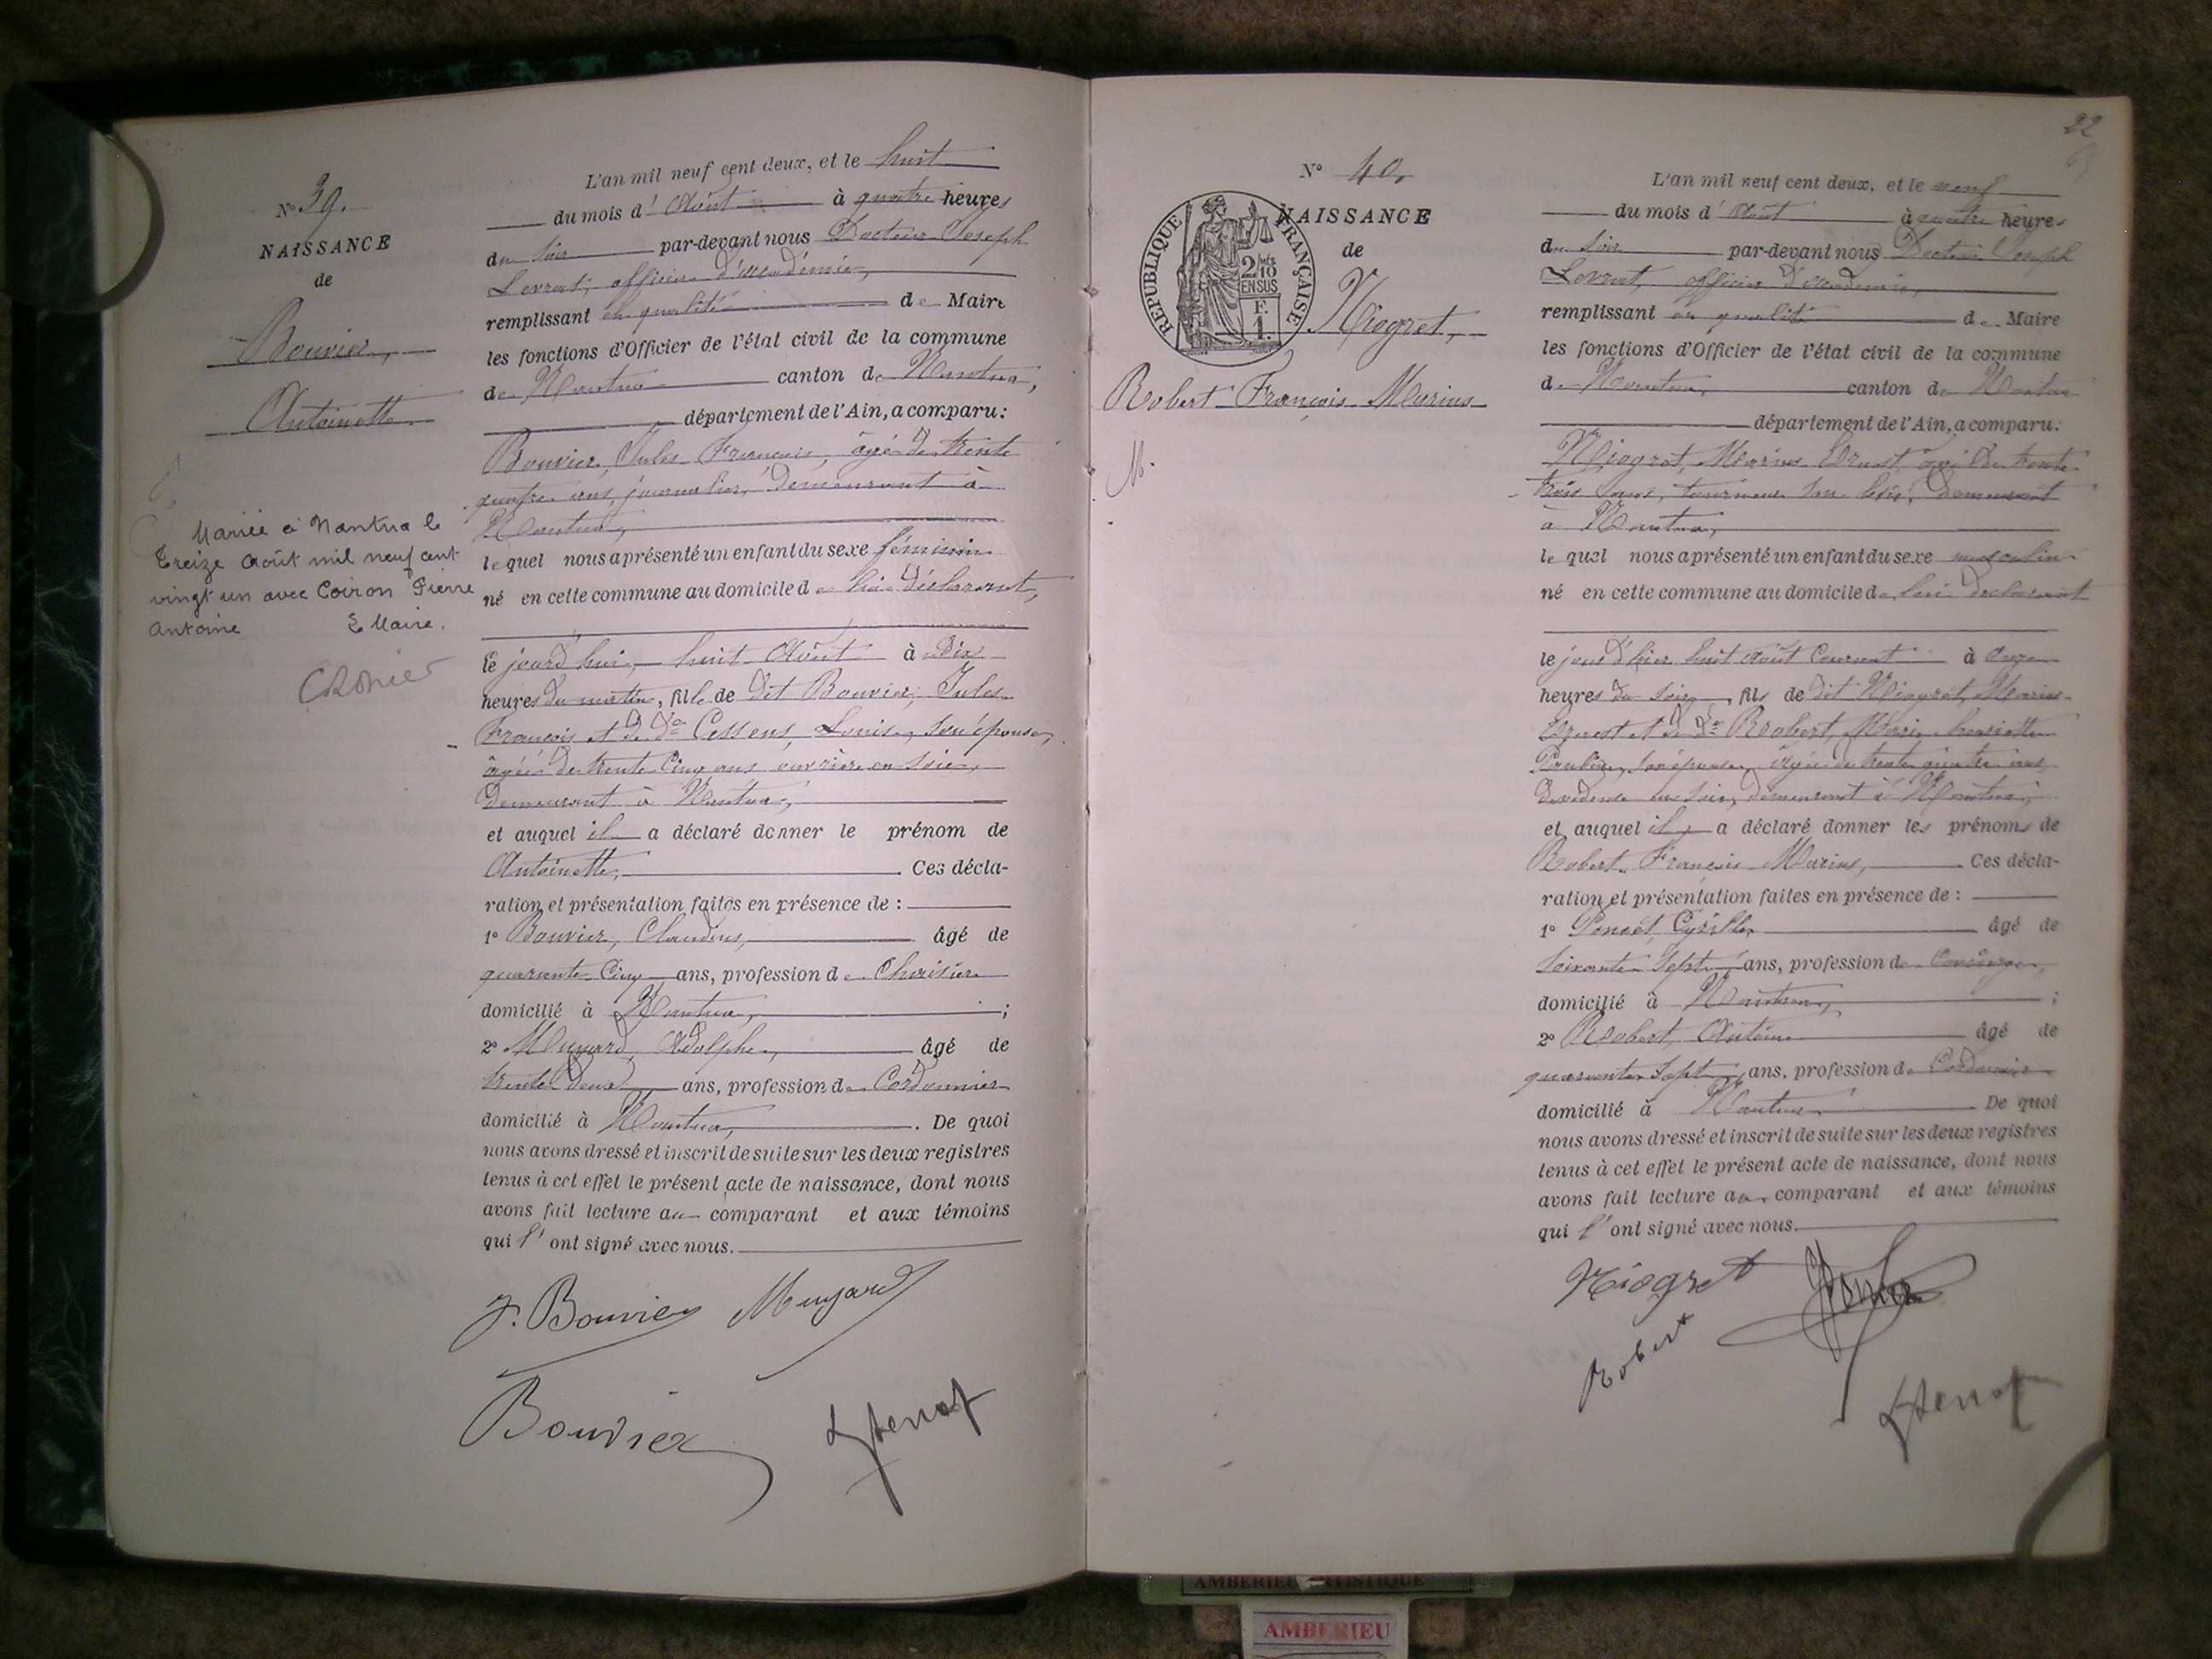 N° 39.
NAISSANCE
de
Bouvier,
Antoinette
Mariée à Nantua le
treize Août mil neuf cent
vingt un avec Coiron Pierre
Antoine Le Maire.
L'an mil neuf cent deux, et le huit
du mois d'Août à quatre heures
du soir par-devant nous Docteur Joseph
Levrat, officier d'académie,
remplissant en qualité de Maire
les fonctions d'Officier de l'état civil de la commune
de Nantua canton de Nantua,
département de l'Ain, a comparu:
Bouvier, Jules François, âgé de trente
quatre ans, journalier, demeurant à
Nantua,
lequel nous a présenté un enfant du sexe féminin
né en cette commune au domicile de lui déclarant,
le jourd'hui, huit Août à dix
heures du matin, fille de dit Bouvier, Jules
François et de de Cessens, Louise, son épouse,
âgée de trente cinq ans ouvrière en soie,
demeurant à Nantua,
et auquel il a déclaré donner le prénom de
Antoinette, Ces décla-
ration et présentation faites en présence de :
1° Bouvier, Claudius, âgé de
quarante cinq ans, profession de Chaisier
domicilié à Nantua, ;
2° Adolphe, âgé de
trente deux ans, profession de Cordonnier
domicilié à Nantua, . De quoi
nous avons dressé et inscrit de suite sur les deux registres
tenus à cet effet le présent acte de naissance, dont nous
avons fait lecture au comparant et aux témoins
qui l'ont signé avec nous.
J. Bouvier
Bouvier
22
N° 40,
NAISSANCE
de
REPUBLIQUE FRANÇAISE
2/10 EN SUS
F. 1.
Niogret,
Robert François Marius
M.
L'an mil neuf cent deux, et le neuf
du mois d'Août à quatre heures
du soir par-devant nous Docteur Joseph
Levrat, officier d'académie,
remplissant en qualité de Maire
les fonctions d'Officier de l'état civil de la commune
de Nantua, canton de Nantua
département de l'Ain, a comparu:
Niogret, Marius Ernest, âgé de trente
trois ans, tourneur sur bois, demeurant
à Nantua,
lequel nous a présenté un enfant du sexe masculin
né en cette commune au domicile de lui déclarant
le jour d'hier huit Août Courant à onze
heures du soir, fils de dit Niogret, Marius
Ernest et de de Robert, Marie henriette
son épouse, âgée de trente quatre ans,
dévideuse en soie, demeurant à Nantua,
et auquel il a déclaré donner les prénoms de
Robert François Marius, Ces décla-
ration et présentation faites en présence de :
1° Poncet, Cyrille âgé de
soixante sept ans, profession de Concierge,
domicilié à Nantua, ;
2° Robert, Antoine âgé de
quarante sept ans, profession de Cordonnier
domicilié à Nantua De quoi
nous avons dressé et inscrit de suite sur les deux registres
tenus à cet effet le présent acte de naissance, dont nous
avons fait lecture au comparant et aux témoins
qui l'ont signé avec nous.
Niogret
Robert
AMBERIEU